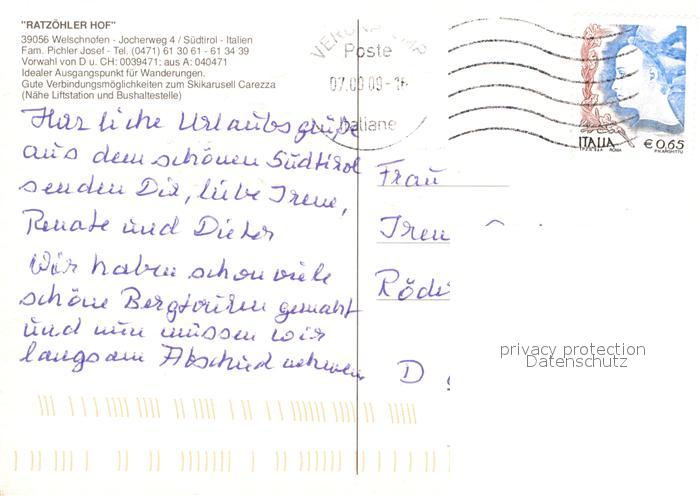 "RATZÖHLER HOF"
39056 Welschnofen - Jocherweg 4 / Südtirol - Italien
Fam. Pichler Josef - Tel. (0471) 61 30 61 - 61 34 39
Vorwahl von D u. CH: 0039471; aus A: 040471
Idealer Ausgangspunkt für Wanderungen.
Gute Verbindungsmöglichkeiten zum Skikarusell Carezza
(Nähe Liftstation und Bushaltestelle)
Herzliche Urlaubsgrüße
aus dem schönen Südtirol
senden Dir, liebe Irene,
Renate und Dieter
Wir haben schon viele
schöne Bergtouren gemacht
und nun müssen wir
langsam Abschied nehmen
VERONA CMP
Poste
Italiane
ITALIA
€ 0,65
Frau
Iren
Röd
D
privacy protection
Datenschutz